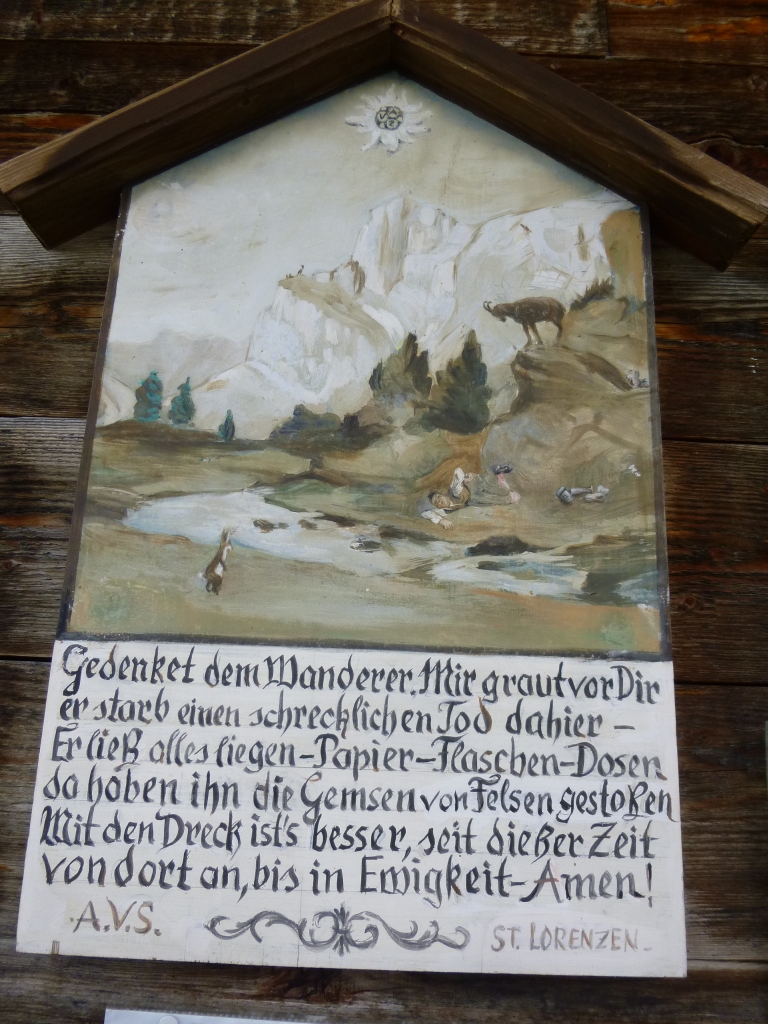 Gedenket dem Wanderer. Mir graut vor Dir
er starb einen schrecklichen Tod dahier –
Er ließ alles liegen – Papier – Flaschen – Dosen
da haben ihn die Gemsen von Felsen gestoßen
Mit den Dreck ist's besser, seit dießer Zeit
von dort an, bis in Ewigkeit – Amen!
A.V.S.
ST. LORENZEN –